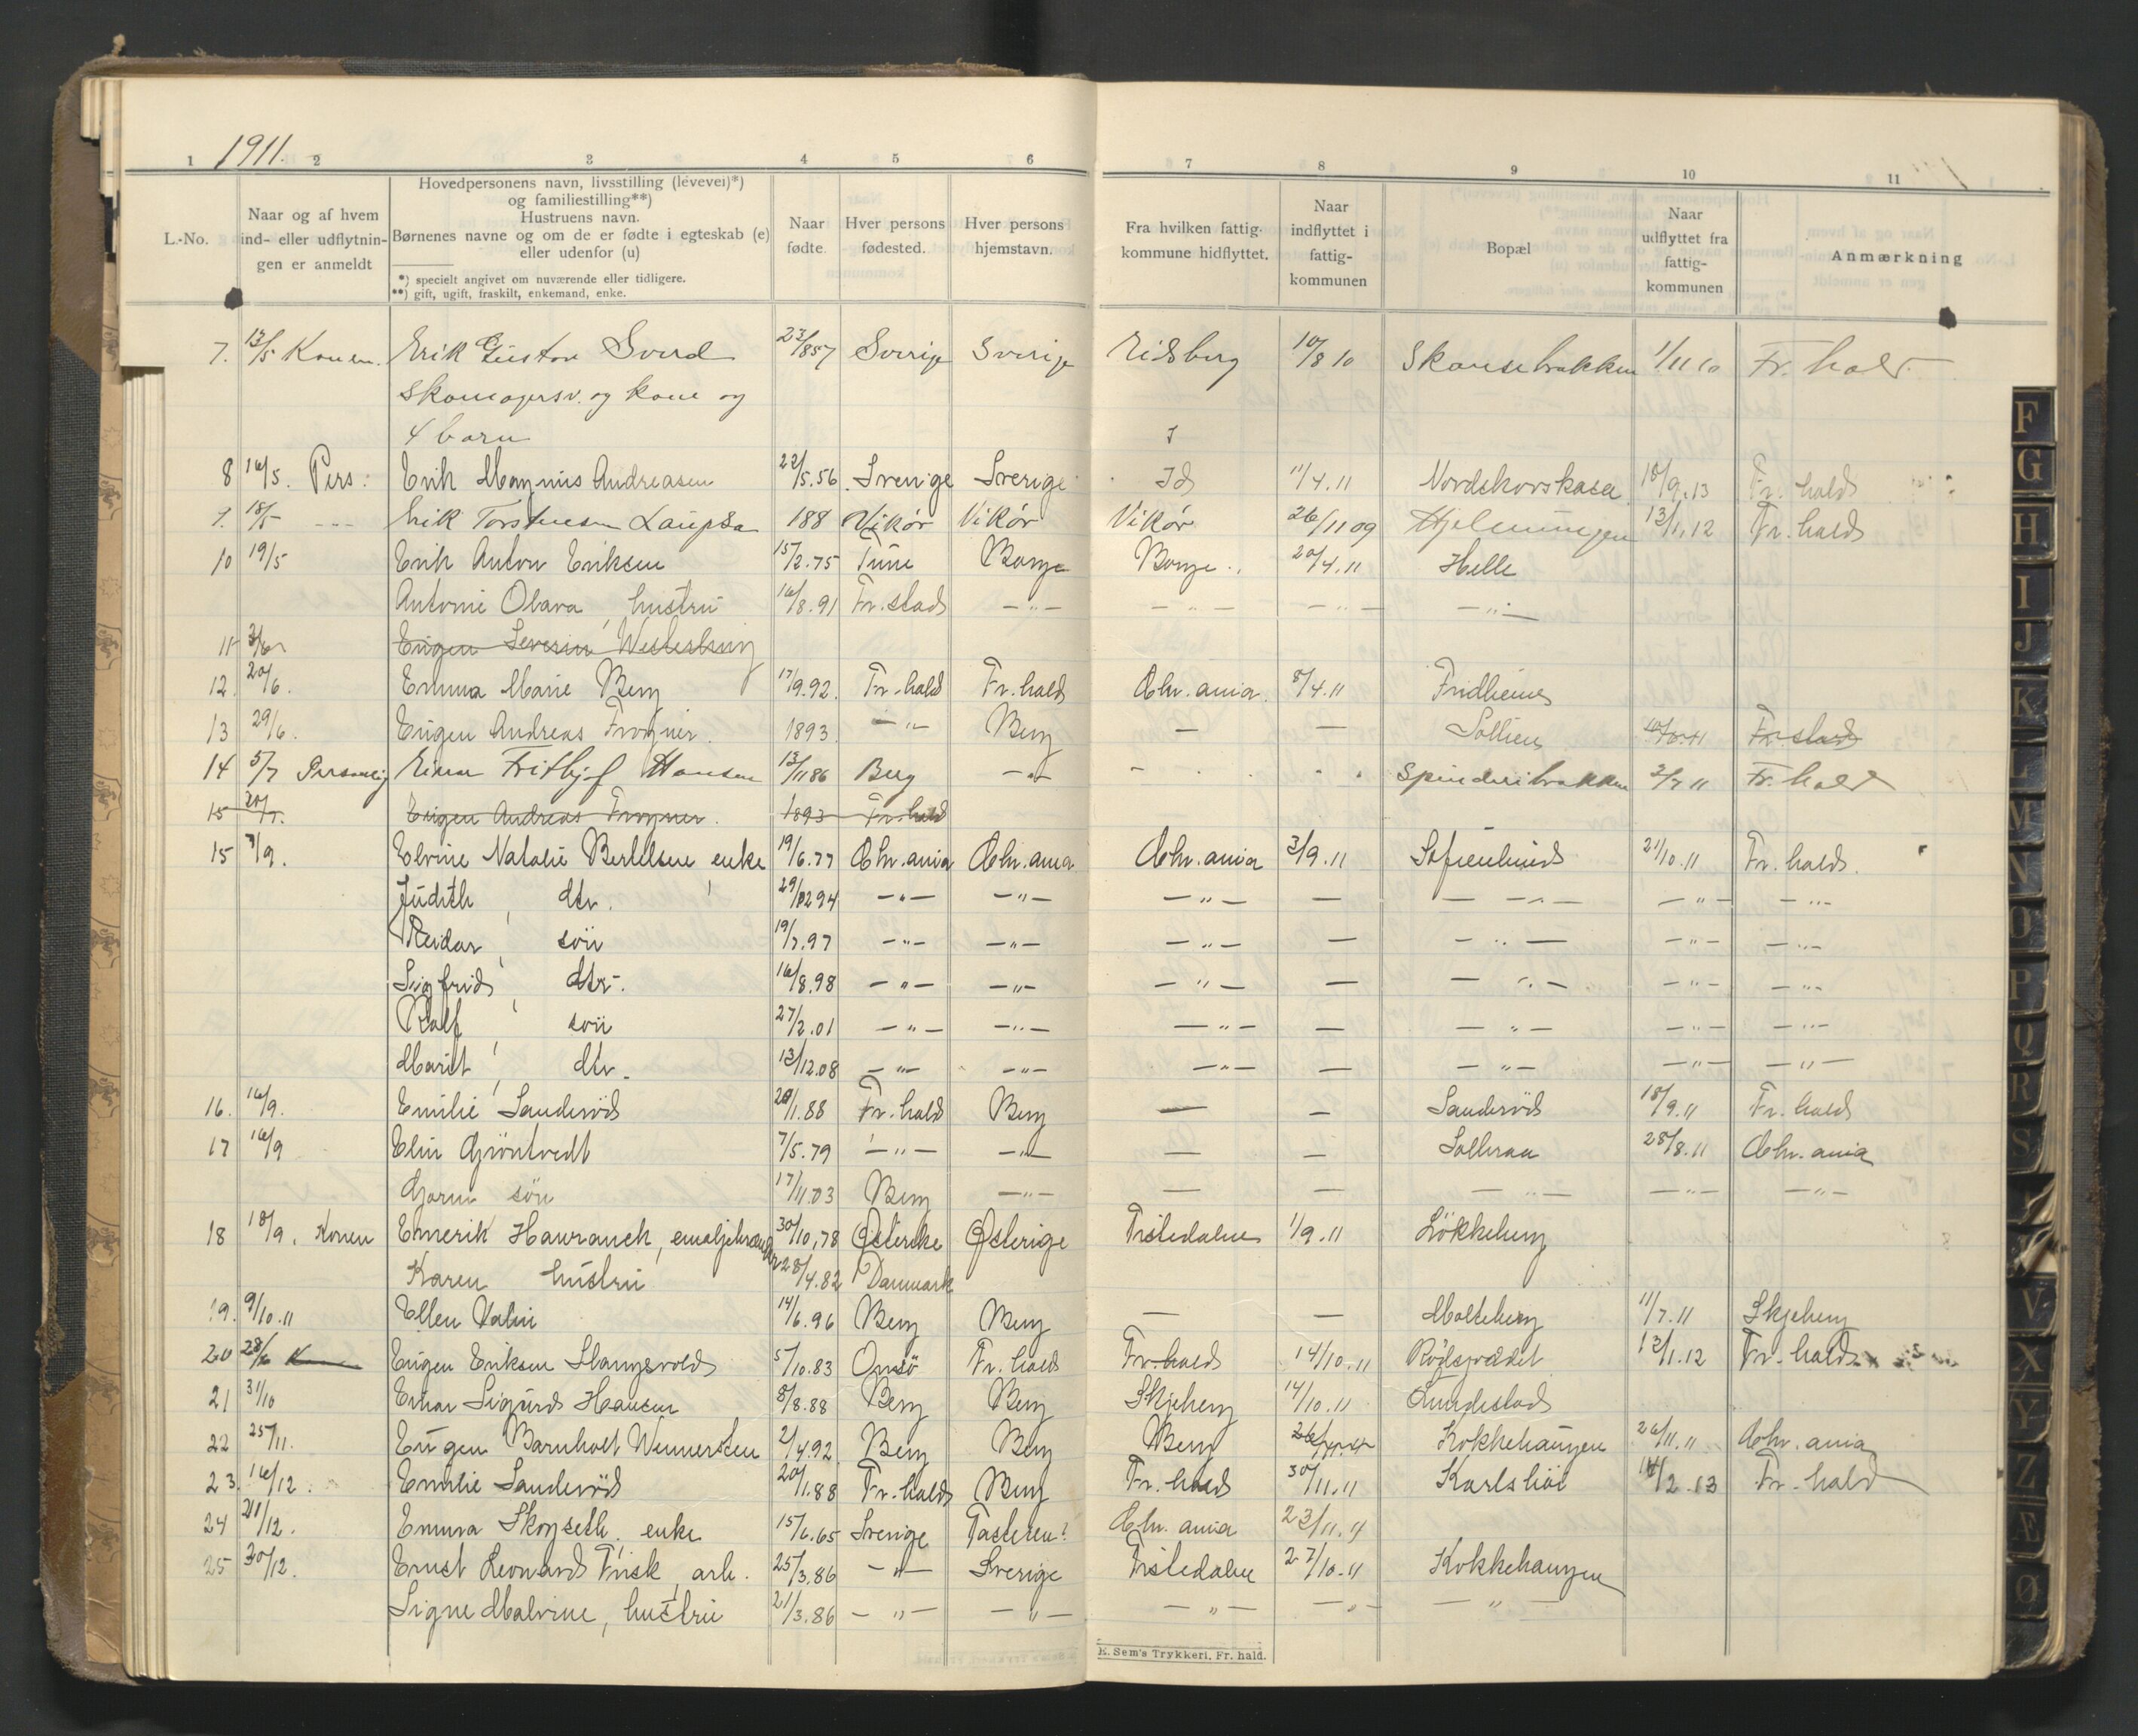 1911.
1 2 3 4 5 6 7 8 9 10 11
L.-No. | Naar og af hvem ind- eller udflytnin-gen er anmeldt | Hovedpersonens navn, livsstilling (levevei)*) og familiestilling**) Hustruens navn. Børnenes navne og om de er fødte i egteskab (e) eller udenfor (u) *) specielt angivet om nuværende eller tidligere. **) gift, ugift, fraskilt, enkemand, enke. | Naar fødte. | Hver persons fødested. | Hver persons hjemstavn. | Fra hvilken fattig-kommune hidflyttet. | Naar indflyttet i fattig-kommunen | Bopæl | Naar udflyttet fra fattig-kommunen | Anmærkning
7. 13/5 Konen. Erik Gustav Sverd 23/8 57 Sverige Sverige Eidsberg 10/8 10 Skansebrakken 1/11 10 Fr. hald.
skomagersv. og kone og
4 barn
8 16/5. Pers: Erik Magnus Andreasen 22/5.56 Sverige Sverige Id 11/4.11 Nordskovskasa 10/9.13 Fr. hald
18/5 --- Erik Torsteinsen Laupsa 188 Vikør Vikør Vikør 26/11 09 Hjelmungen 13/1.12 Fr. hald
10 19/5 Erik Anton Eriksen 15/2.75 Tune Borge Borge 20/4.11 Helle
Antonie Olava, hustru 16/8.91 Fr. stad -"- -"- -"- -"-
11 3/6 Eugen Severin
12. 20/6. Emma Marie Berg 17/9.92. Fr. hald Fr. hald Chr. ania. 8/4.11 Fridheim
13 29/6. Eugen Andreas Frogner. 1893. -"- Berg - - Sollien Fr. stad
14 5/7 Personlig Einar Fritjhof Hansen 13/11 86 Berg -"- - Spinderibrakken 2/7 11 Fr. hald
15 20/7. Eugen Andreas Frogner. 1893 Fr. hald
15 7/9. Elvine Natalie Bertelsen enke 19/6.77 Chr. ania Chr. ania Chr. ania 3/9.11 Sofienlund 21/10.11 Fr. hald.
Judith, dtr. 29/12 94 -"- -"- -"- - -"- -"- -"-
Reidar, søn 19/7.97 -"- -"- -"- - -"- -"- -"-
Sigfrid, dtr. 16/8.98 -"- -"- -"- - -"- -"- -"-
Ralf, søn 27/2.01 -"- -"- -"- - -"- -"- -"-
Marit, dtr. 13/12.08 -"- -"- -"- - -"- -"- -"-
16. 16/9. Emilie Sanderød 20/1.88 Fr. hald Berg - - Sanderød 18/9.11 Fr. hald
17 16/9 Elin Grøntvedt 7/5.79 -"- -"- - - Solleraa 28/8.11 Chr. ania
Gorm søn 17/11.03 Berg -"- - - -"- -"- -"-
18 18/9. Konen Emerik Hawranek, emaljebrænder 30/10.78 Østerike Østerige Tistedalen 1/9.11 Løkkeberg
Karen hustru 28/4.82 Danmark
19. 9/10.11 Ellen Valin 14/6.96 Berg Berg - - Molteberg 11/7.11 Skjeberg
20 28/ Eugen Eriksen Stangsvold 5/10.83 Onsø Fr. hald Fr. hald 14/10.11 Rødsgrædet 13/1.12 Fr. hald
21 31/10 Einar Sigurd Hansen 8/8.88 Berg Berg Skjeberg 14/10.11 Lundestad
22 25/11. Eugen Barnholt Wennersten 2/4.92 Berg Berg Berg Kokkehaugen 26/11.11 Chr. ania
23. 16/12. Emilie Sanderød 20/1.88 Fr. hald Berg Fr. hald 30/11.11 Karlshøi 14/2.13 Fr. hald
24 21/12. Emma Skogseth, enke 15/6.65 Sverige Chr. ania 23/11.11
25 30/12. Ernst Leonard Frisk, arb. 25/3.86 -"- Sverige Tistedalen 27/10.11 Kokkehaugen
Signe Malvine, hustru 21/3.86 -"- -"- -"- -"- -"-
E. Sem's Trykkeri, Fr. hald.
F
G
H
I
J
K
L
M
N
O
P
Q
R
S
V
X
Y
Z
Æ
Ø